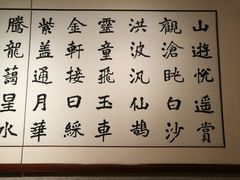 山遊悅遥賞
觀滄眺白沙
洪波汎仙鵠
靈童飛玉車
金軒接日綵
紫蓋通月華
騰龍藹星水